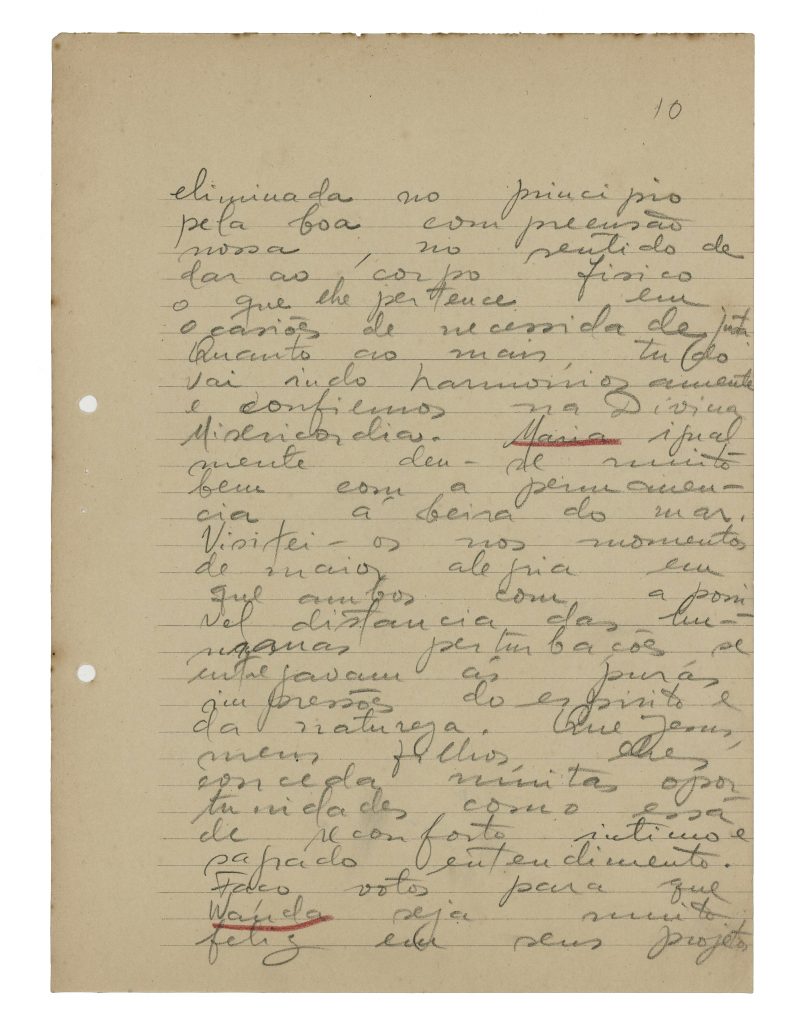 10
eliminada no principio
pela boa compreensão
nossa, no sentido de
dar ao corpo fisico
o que lhe pertence em
ocasiões de necessidade justa
Quanto ao mais, tudo
vai indo harmoniosamente
e confiemos na Divina
Misericordia. Maria igual
mente deu-se muito
bem com a permanen-
cia á beira do mar.
Visitei-os nos momentos
de maior alegria em
que ambos com a possi
vel distancia das hu-
manas perturbações se
entregavam ás puras
impressões do espirito e
da natureza. Que Jesus,
meus filhos, lhes
conceda muitas opor
tunidades como essa
de reconforto intimo e
sagrado entendimento.
Faço votos para que
Wanda seja muito
feliz em seus projetos